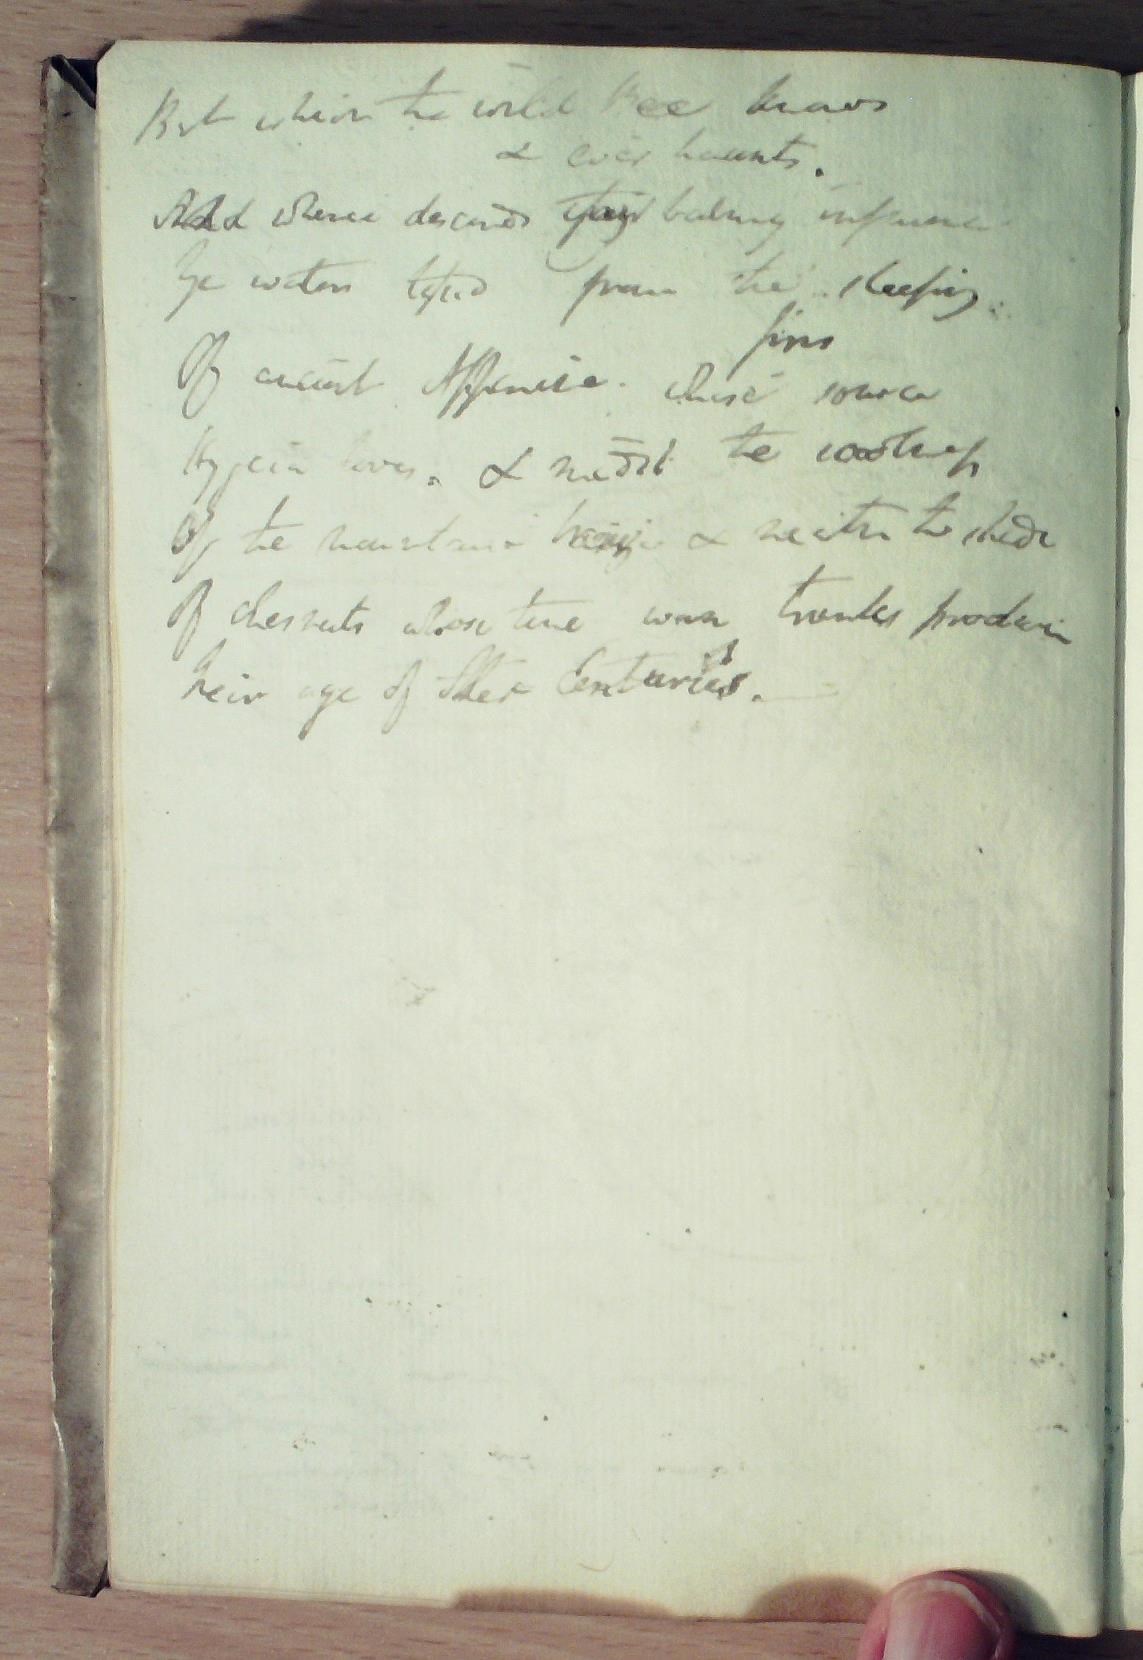 But which the wild Bee knows
& ever haunts.
And whence descends balmy influence
Ye waters from the sleeping
firs
Of ancient Appenine. whose source
Hygeia loves. & midst the
Of the mountain & neath the shade
Of chesnuts whose time worn trunks proclaim
Their age of Centuries.